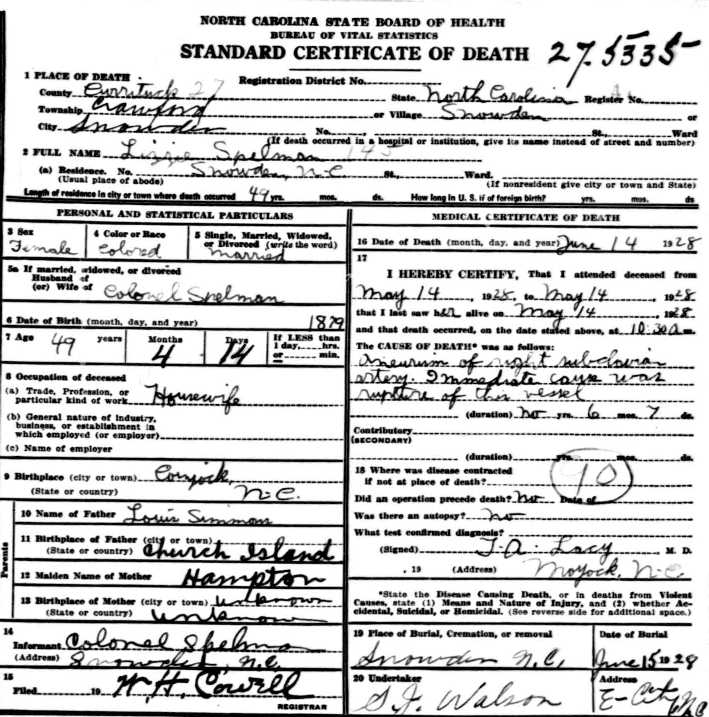 NORTH CAROLINA STATE BOARD OF HEALTH
BUREAU OF VITAL STATISTICS
STANDARD CERTIFICATE OF DEATH 275335
1 PLACE OF DEATH
Registration District No.
County Currituck 27 State North Carolina Register No.
Township Crawford or Village Snowden or
City Snowden No. St., Ward
(If death occurred in a hospital or institution, give its name instead of street and number)
2 FULL NAME Lizzie Spelman 145
(a) Residence. No. Snowden, N-C St., Ward.
(Usual place of abode) (If nonresident give city or town and State)
Length of residence in city or town where death occurred 49 yrs. mos. ds. How long in U. S. if of foreign birth? yrs. mos. ds
PERSONAL AND STATISTICAL PARTICULARS
3 Sex
Female
4 Color or Race
Colored
5 Single, Married, Widowed,
or Divorced (write the word)
Married
5a If married, widowed, or divorced
Husband of
(or) Wife of Colonel Spelman
6 Date of Birth (month, day, and year) 1879
7 Age 49 years Months 4 Days 14 If LESS than
1 day, hrs.
or min.
8 Occupation of deceased
(a) Trade, Profession, or
particular kind of work Housewife
(b) General nature of industry,
business, or establishment in
which employed (or employer)
(c) Name of employer
9 Birthplace (city or town) Coinjock,
(State or country) N-C.
Parents
10 Name of Father Louis Simmon
11 Birthplace of Father (city or town)
(State or country) Church Island
12 Maiden Name of Mother Hampton
13 Birthplace of Mother (city or town) unknown
(State or country) unknown
14
Informant Colonel Spelman
(Address) Snowden, N.C.
15
Filed 19 W. H. Cowell
REGISTRAR
MEDICAL CERTIFICATE OF DEATH
16 Date of Death (month, day, and year) June 14 1928
17
I HEREBY CERTIFY, That I attended deceased from
May 14, 1928, to May 14, 1928
that I last saw her alive on May 14, 1928
and that death occurred, on the date stated above, at 10:30 a m.
The CAUSE OF DEATH* was as follows:
Aneurism of right subclavian
artery. Immediate cause was
rupture of this vessel
(duration) no yrs. 6 mos. 7 ds.
Contributory
(SECONDARY)
(duration) yrs. mos. ds.
18 Where was disease contracted
if not at place of death? 90
Did an operation precede death? No Date of
Was there an autopsy? no
What test confirmed diagnosis?
(Signed) T. A. Lacy M. D.
, 19 (Address) Moyock, N-C.
*State the Disease Causing Death, or in deaths from Violent
Causes, state (1) Means and Nature of Injury, and (2) whether Ac-
cidental, Suicidal, or Homicidal. (See reverse side for additional space.)
19 Place of Burial, Cremation, or removal
Snowden N.C.
Date of Burial
June 15 1928
20 Undertaker
S. J. Walson
Address
E-City NC